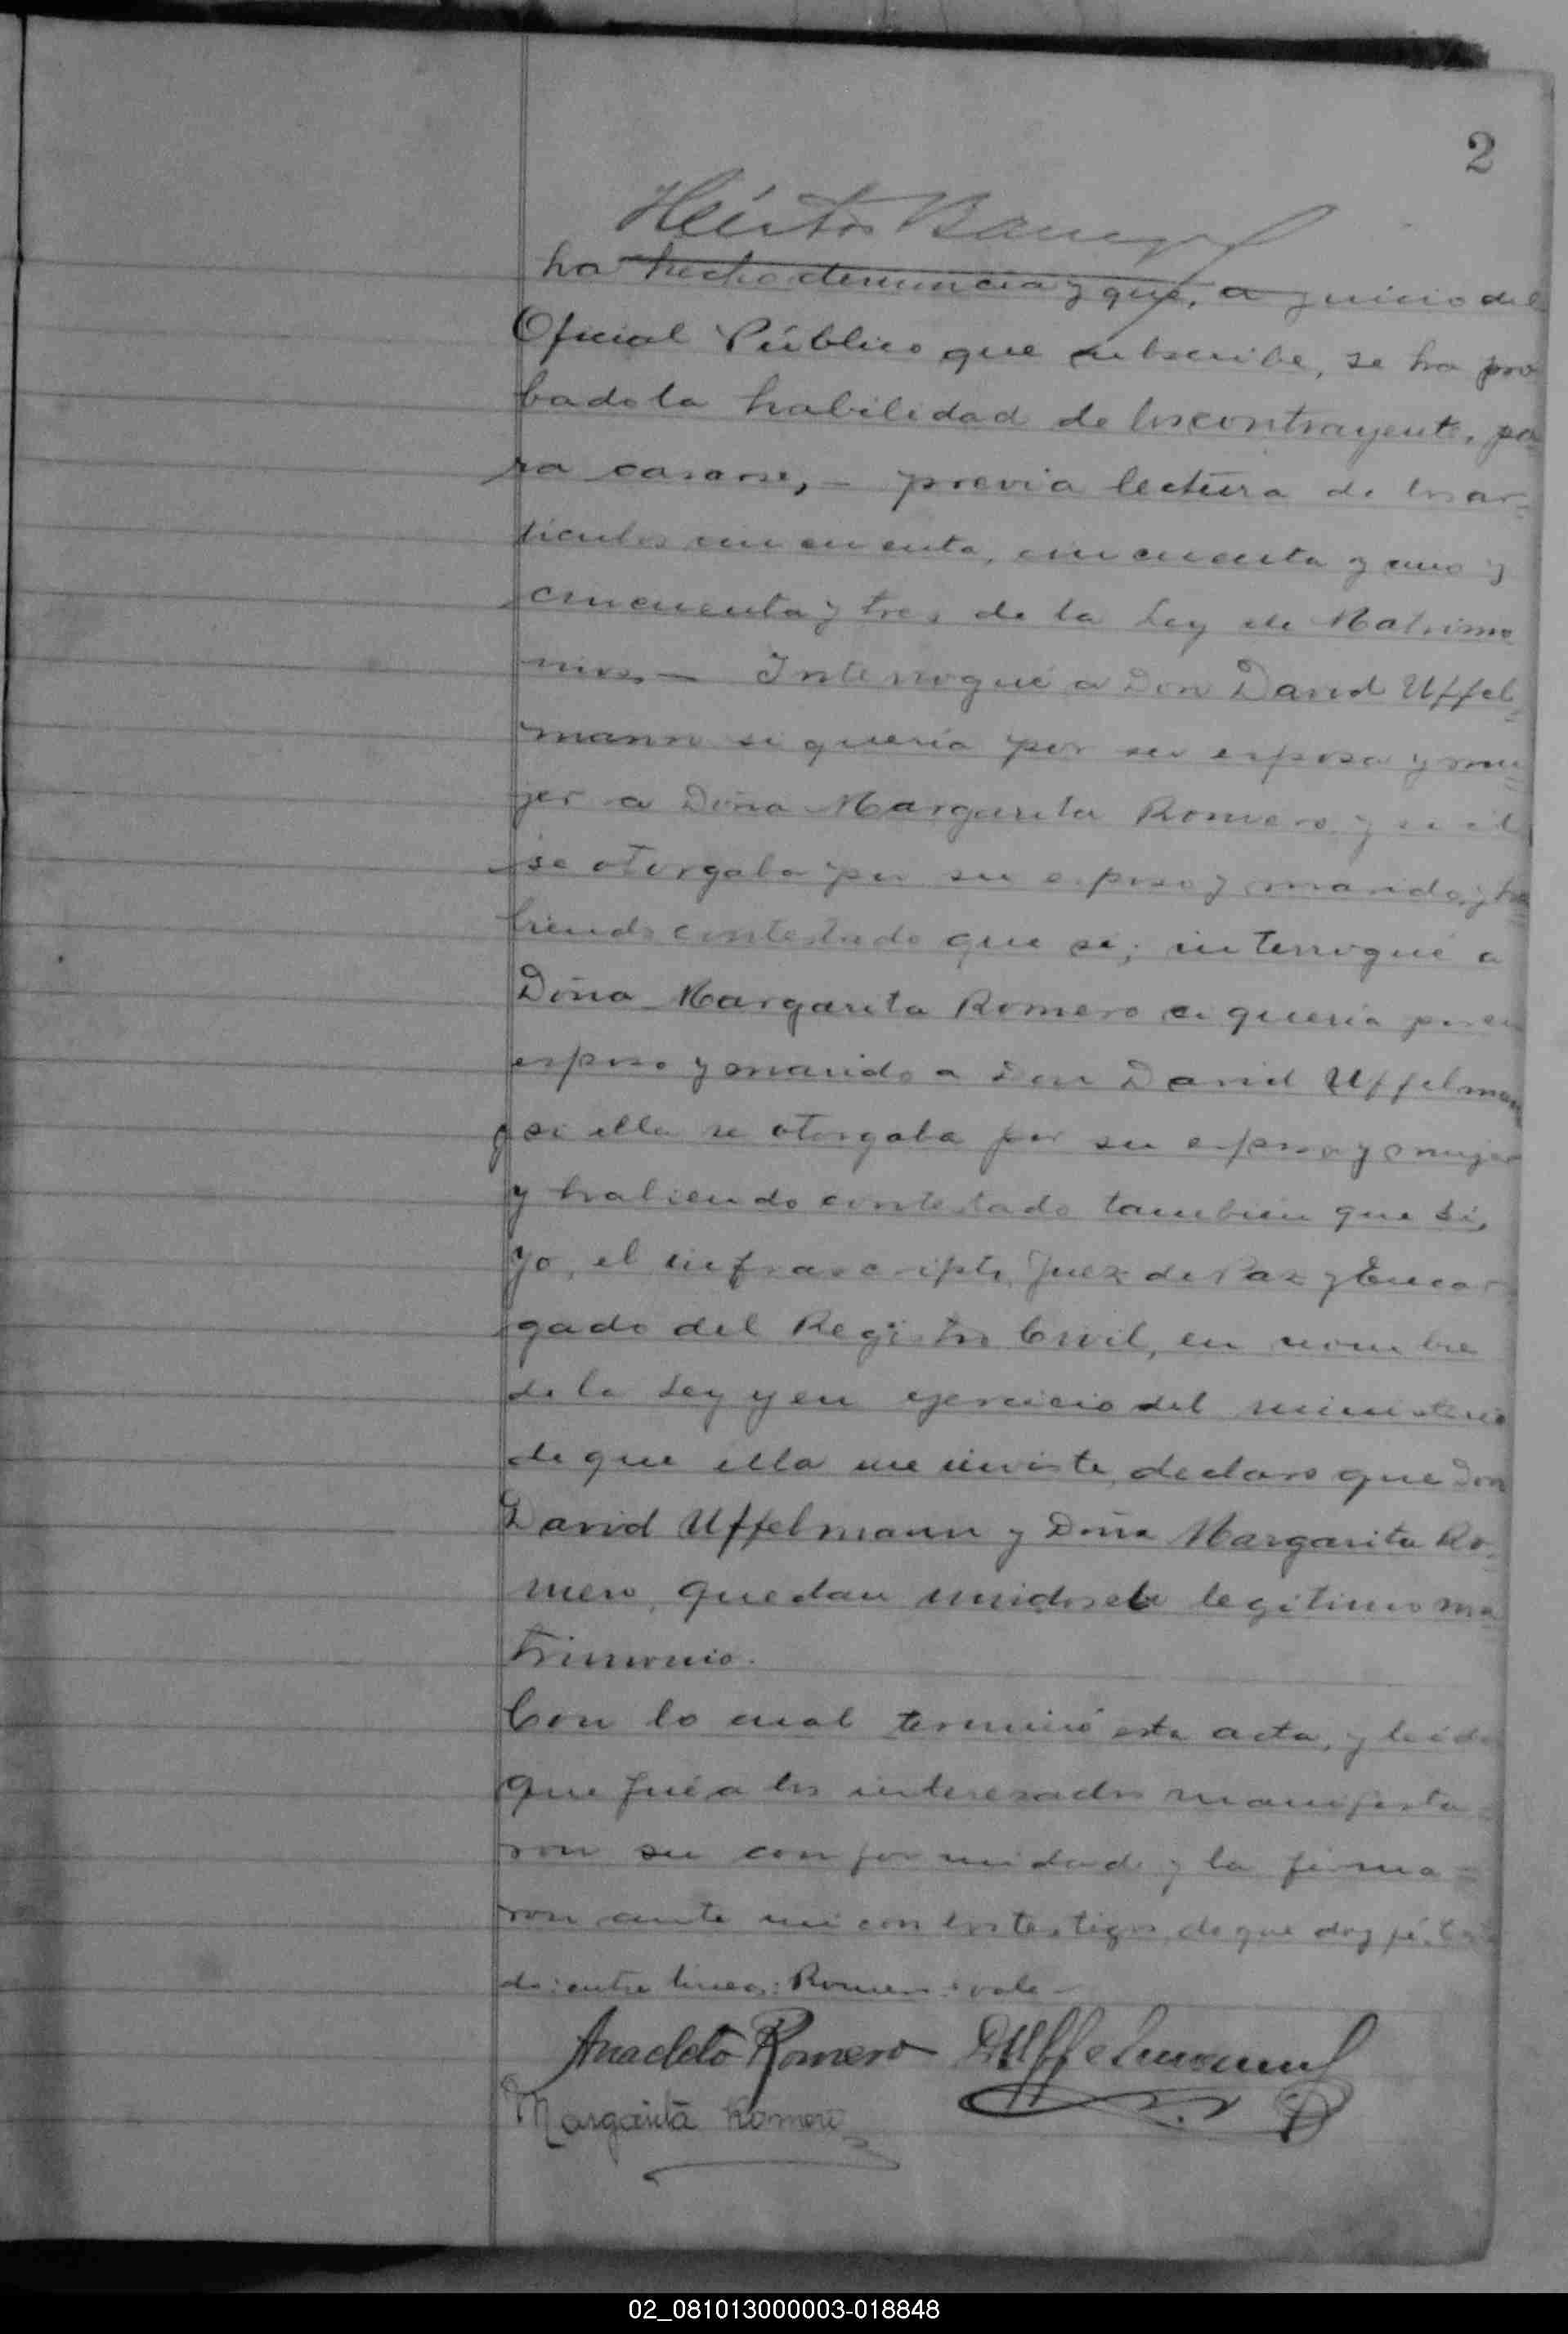 2
Héctor
ha hecho denuncia y que, a juicio del
Oficial Público que subscribe, se ha pro
bado la habilidad de los contrayentes, pa-
ra casarse, - previa lectura de los ar-
tículos cincuenta, cincuenta y uno y
cincuenta y tres de la Ley de Matrimo
nios. - Interrogué a Don David Uffel-
mann si quería por su esposa y mu-
jer a Doña Margarita Romero y si él
se otorgaba por su esposo y marido, y ha
biendo contestado que sí; interrogué a
Doña Margarita Romero si quería por su
esposo y marido a Don David Uffelmann
y si ella se otorgaba por su esposa y mujer
y habiendo contestado también que sí,
yo, el infrascripto Juez de Paz y Encar
gado del Registro Civil, en nombre
de la Ley y en ejercicio del ministerio
de que ella me inviste, declaro que Don
David Uffelmann y Doña Margarita Ro-
mero, quedan unidos en legítimo ma-
trimonio.
Con lo cual terminó esta acta, y leída
que fué a los interesados manifesta-
ron su conformidad y la firma-
ron ante mi con los testigos, de que doy fé.
do: entre líneas: Romero: vale -
Anacleto Romero DUffelmann
Margarita Romero
02_081013000003-018848